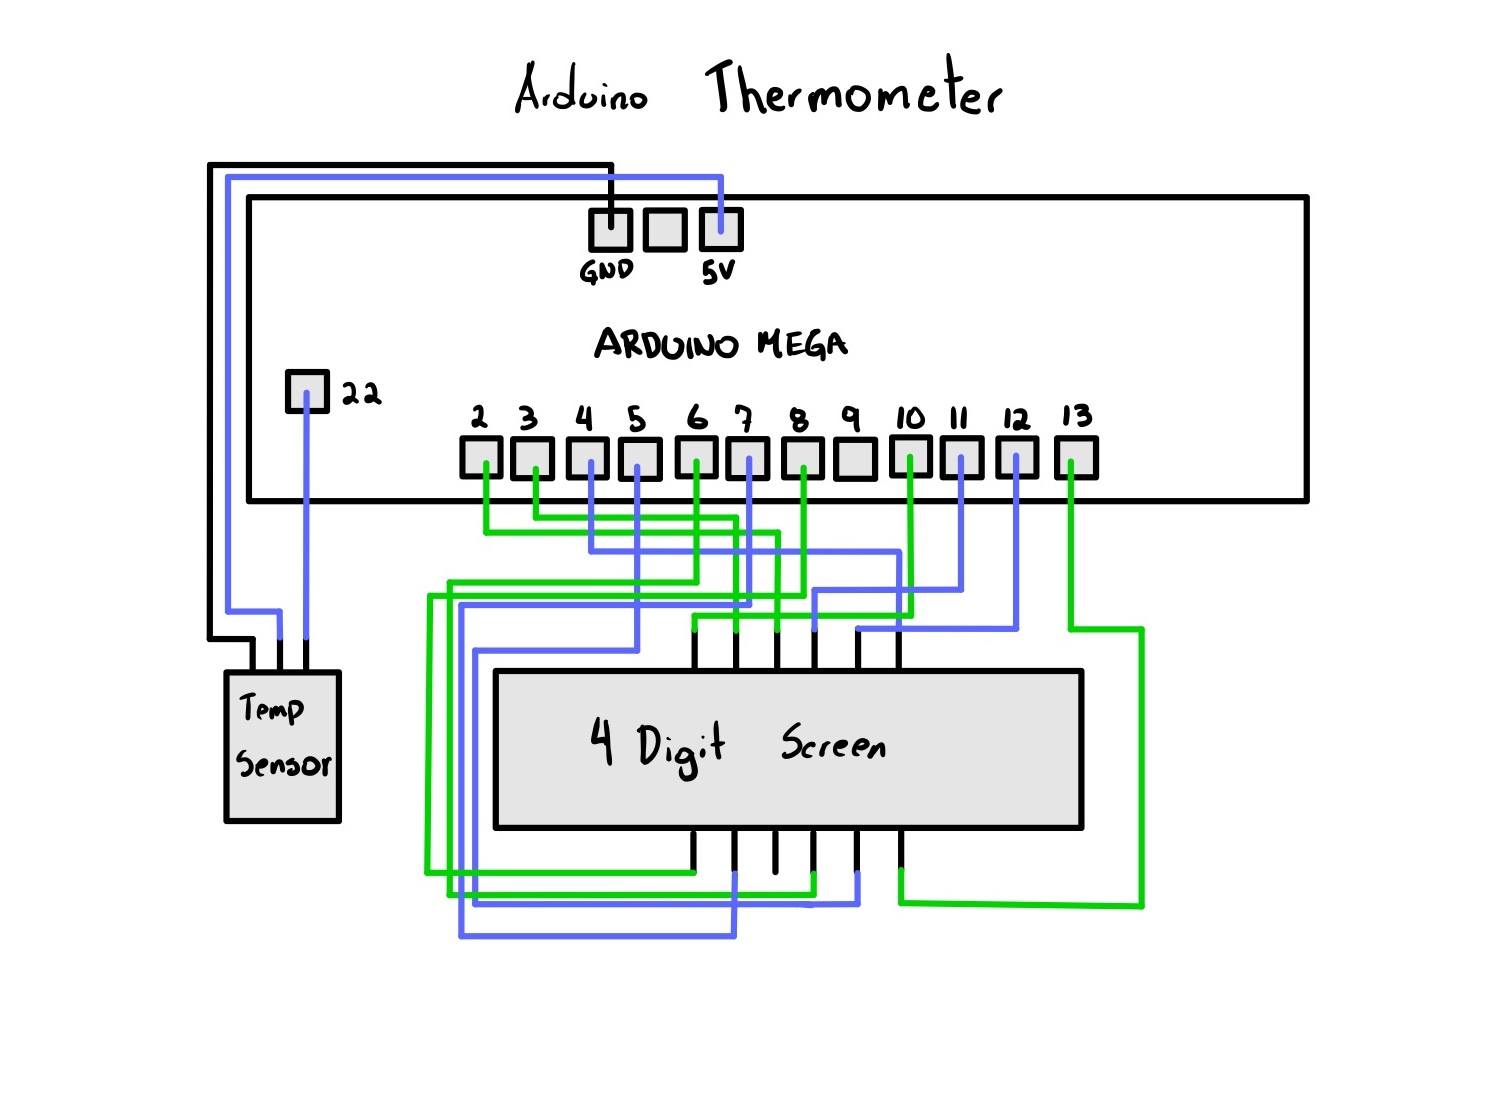 Arduino Thermometer
GND 5V
ARDUINO MEGA
22
2 3 4 5 6 7 8 9 10 11 12 13
Temp
Sensor
4 Digit Screen